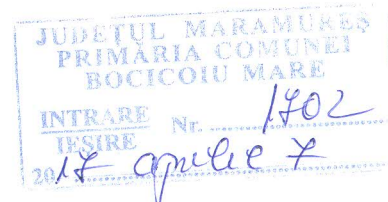 JUDEŢUL MARAMUREŞ
PRIMĂRIA COMUNEI
BOCICOIU MARE
INTRARE
IEŞIRE Nr. 1702
2017 aprilie 7